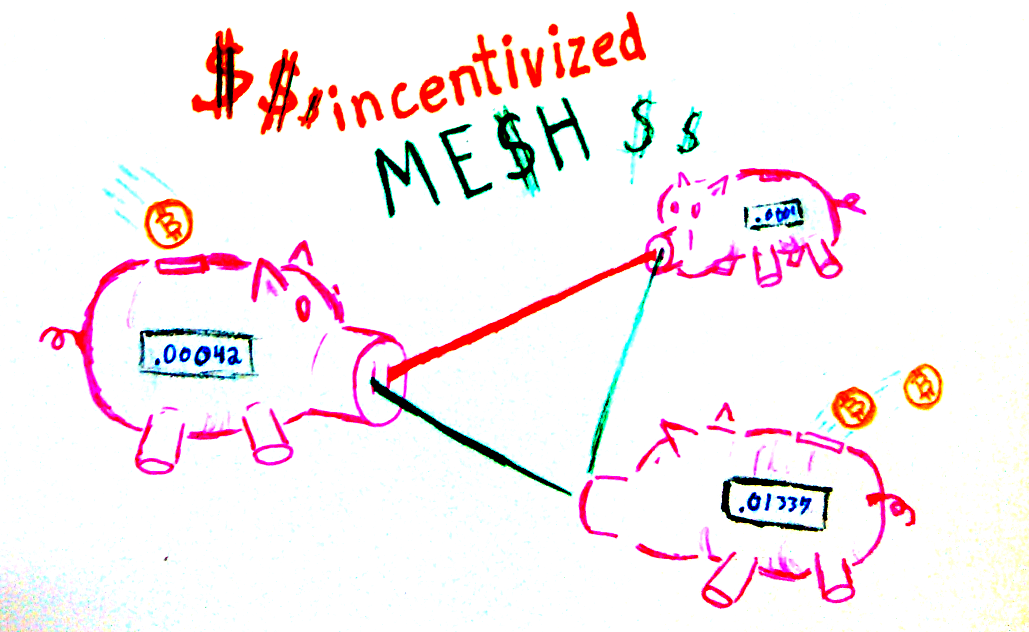 $$$incentivized
ME$H $$
.00042
.0001
.01337